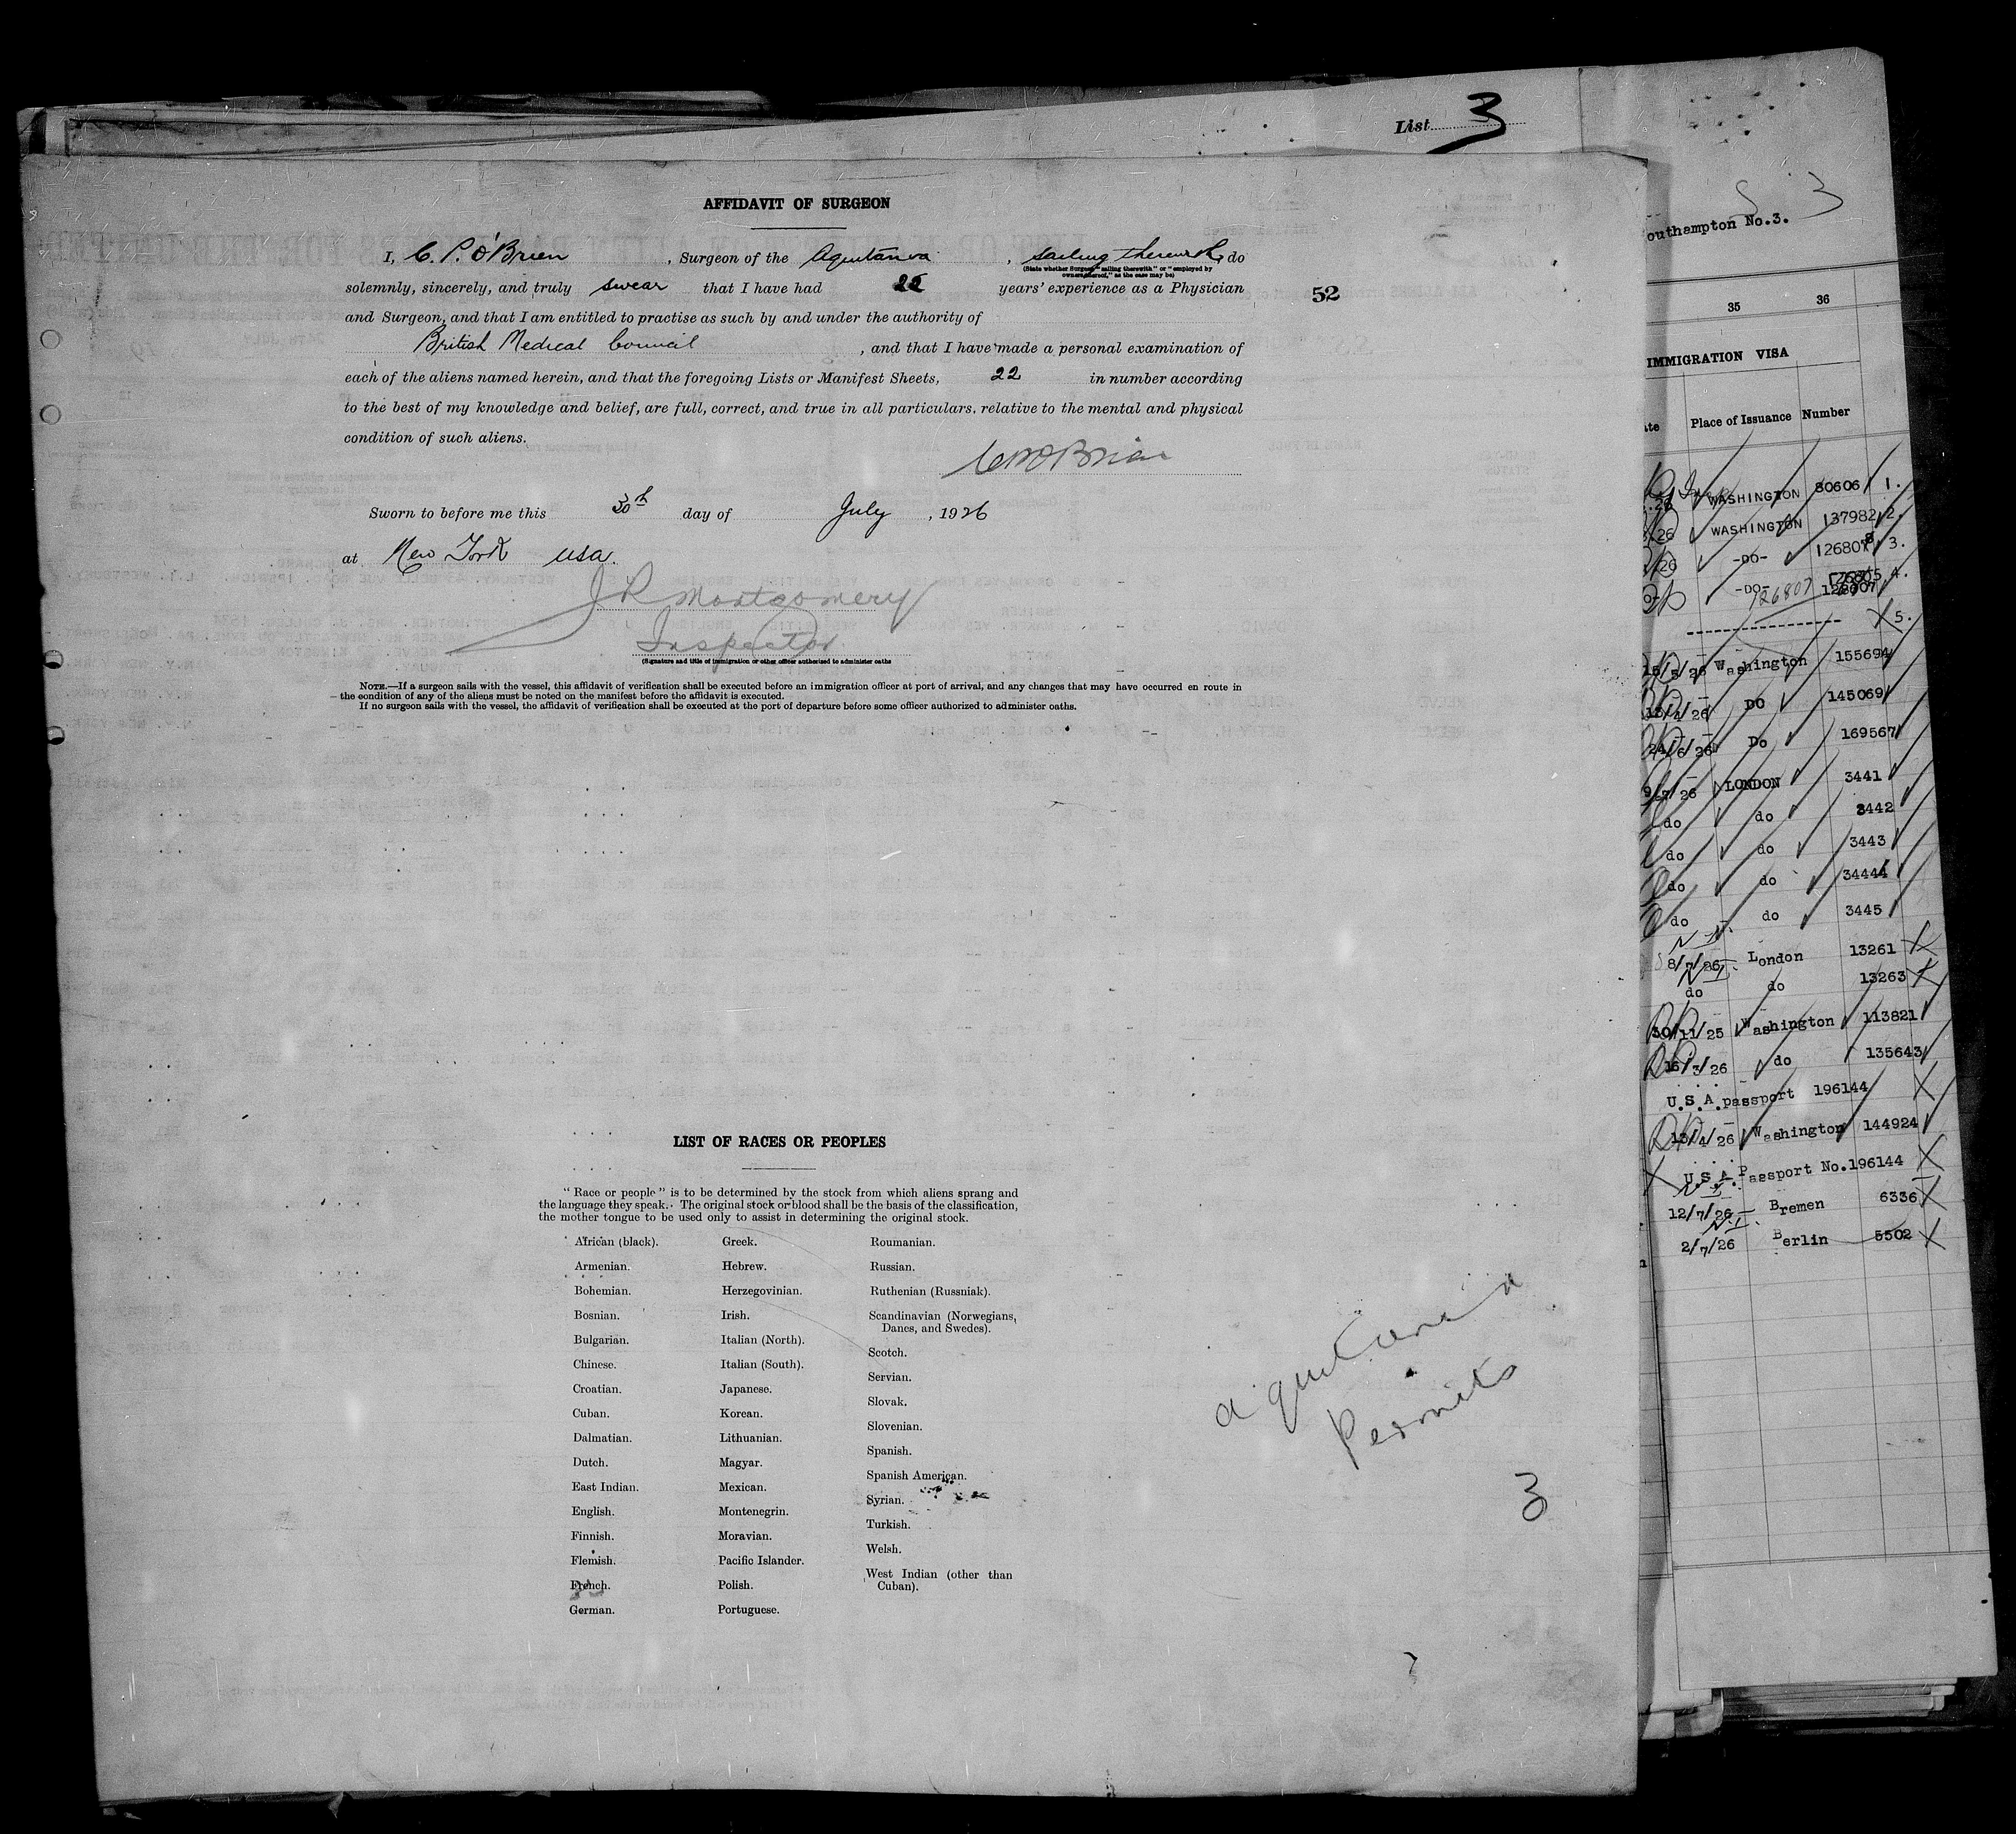 List 3
AFFIDAVIT OF SURGEON
I, C. P. O'Brien, Surgeon of the Aquitania, sailing therewith, do
(State whether Surgeon "sailing therewith" or "employed by
owners thereof," as the case may be)
solemnly, sincerely, and truly swear that I have had years' experience as a Physician
52
and Surgeon, and that I am entitled to practise as such by and under the authority of
British Medical Council, and that I have made a personal examination of
each of the aliens named herein, and that the foregoing Lists or Manifest Sheets, 22 in number according
to the best of my knowledge and belief, are full, correct, and true in all particulars. relative to the mental and physical
condition of such aliens.
CPO'Brien
Sworn to before me this 30th day of July, 1926
at New York USA.
J R Montgomery
Inspector
(Signature and title of immigration or other officer authorized to administer oaths
NOTE.—If a surgeon sails with the vessel, this affidavit of verification shall be executed before an immigration officer at port of arrival, and any changes that may have occurred en route in
the condition of any of the aliens must be noted on the manifest before the affidavit is executed.
If no surgeon sails with the vessel, the affidavit of verification shall be executed at the port of departure before some officer authorized to administer oaths.
LIST OF RACES OR PEOPLES
"Race or people" is to be determined by the stock from which aliens sprang and
the language they speak. The original stock or blood shall be the basis of the classification,
the mother tongue to be used only to assist in determining the original stock.
African (black).
Armenian.
Bohemian.
Bosnian.
Bulgarian.
Chinese.
Croatian.
Cuban.
Dalmatian.
Dutch.
East Indian.
English.
Finnish.
Flemish.
French.
German.
Greek.
Hebrew.
Herzegovinian.
Irish.
Italian (North).
Italian (South).
Japanese.
Korean.
Lithuanian.
Magyar.
Mexican.
Montenegrin.
Moravian.
Pacific Islander.
Polish.
Portuguese.
Roumanian.
Russian.
Ruthenian (Russniak).
Scandinavian (Norwegians,
Danes, and Swedes).
Scotch.
Servian.
Slovak.
Slovenian.
Spanish.
Spanish American.
Syrian.
Turkish.
Welsh.
West Indian (other than
Cuban).
aquitania
Permits
3
S 3
outhampton No.3.
35 36
IMMIGRATION VISA
te Place of Issuance Number
26 WASHINGTON 80606 1.
/26 WASHINGTON 137982 2.
/26 -DO- 3.
-DO- 126807 4.
5.
15/5/26 Washington 155694
DO 145069
24/6/26 Do 169567
9/7/26 LONDON 3441
do do 3442
do do 3443
do do 34444
do do 3445
N.I.
8/7/26 London 13261
N.I.
do do 13263
30/11/25 Washington 113821
16/3/26 do 135643
U.S.A.passport 196144
13/4/26 Washington 144924
U.S.A.Passport No.196144
N.I.
12/7/26 Bremen 6336
N.I.
2/7/26 Berlin 5502